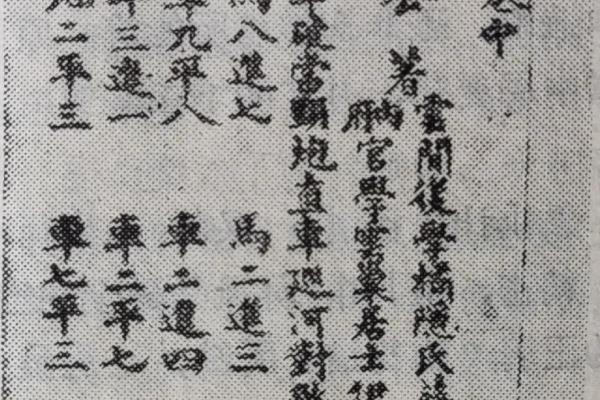 中
著
雲間後學橘隱氏
官學雲巢居士
當頭炮直車巡河對
馬八進七 馬二進三
車九平八 車二進四
三進一 車二平七
二平三 車七平三